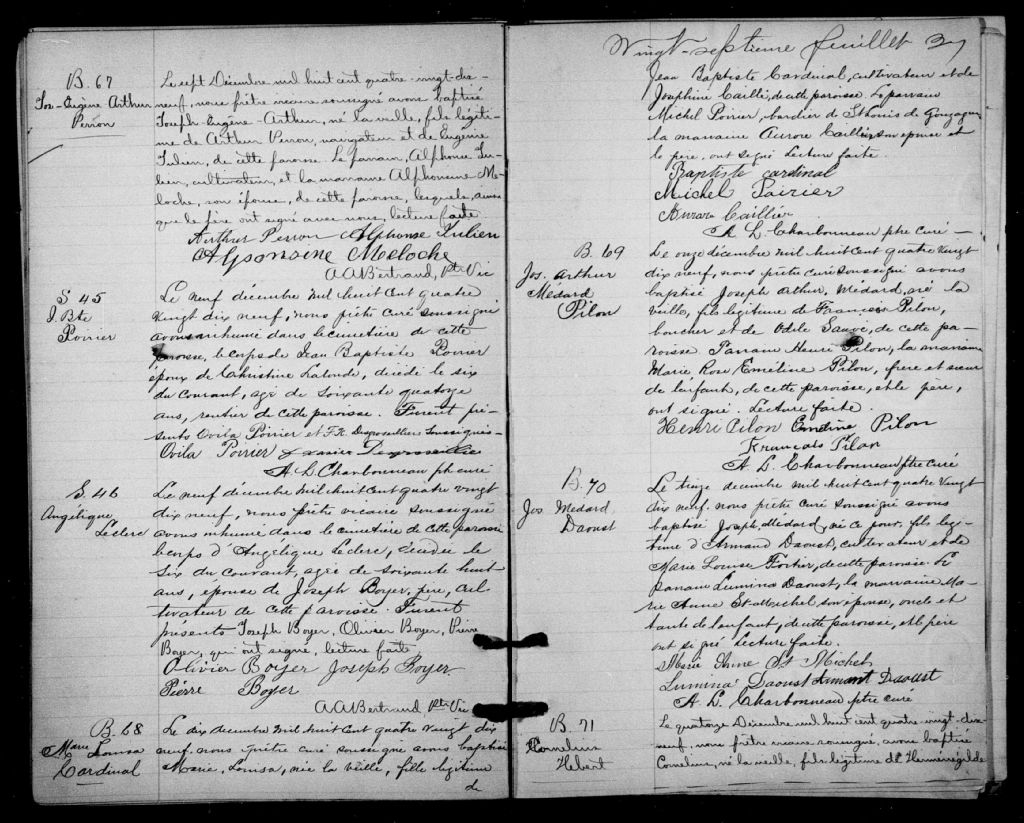 B. 67
Jos-Eugène Arthur
Perron
Le sept Décembre mil huit cent quatre-vingt-dix-
neuf, nous prêtre vicaire soussigné avons baptisé
Joseph-Eugène-Arthur, né la veille, fils légiti-
me de Arthur Perron, navigateur et de Eugénie
Julien, de cette paroisse. Le parrain, Alphonse Ju-
lien, cultivateur, et la marraine Alphonsine Me-
loche, son épouse, de cette paroisse, lesquels, ainsi
que le père ont signé avec nous, lecture faite
Arthur Perron Alphonse Julien
Alphonsine Meloche
A A Bertrand, Ptre Vic
S. 45
J. Bte
Poirier
Le neuf décembre mil huit cent quatre
vingt dix neuf, nous prêtre curé soussigné
avons inhumé dans le cimetière de cette
paroisse, le corps de Jean Baptiste Poirier
époux de Christine Lalonde, décédé le six
du courant, agé de soixante quatorze
ans, rentier de cette paroisse. Furent pré-
sents Ovila Poirier et F.X. Desgroseilliers Soussignés-
Ovila Poirier
A. L. Charbonneau ptre curé
S. 46
Angélique
Leclerc
Le neuf décembre mil huit cent quatre vingt
dix neuf, nous prêtre vicaire soussigné
avons inhumé dans le cimetière de cette paroisse
le corps d'Angélique Leclerc, décédée le
six du courant, agée de soixante huit
ans, épouse de Joseph Boyer, père, cul-
tivateur de cette paroisse. Furent
présents Joseph Boyer, Olivier Boyer, Pierre
Boyer, qui ont signé, lecture faite
Olivier Boyer Joseph Boyer
Pierre Boyer
A A Bertrand Ptre Vic
B. 68
Marie Louisa
Cardinal
Le dix decembre mil huit cent quatre vingt dix
neuf. nous prêtre curé soussigné avons baptisé
Marie, Louisa, née la veille, fille légitime
de
Vingt-septieme feuillet 27
Jean Baptiste Cardinal, cultivateur et de
Josephine Caillé, de cette paroisse. Le parrain
Michel Poirier, bordier de St Louis de Gonzague
la marraine Aurore Caillé son epouse et
le père, ont signé Lecture faite.
Baptiste Cardinal
Michel Poirier
Aurore Caillier
A L. Charbonneau ptre curé -
B. 69
Jos. Arthur
Médard
Pilon
Le onze décembre mil huit cent quatre vingt
dix neuf, nous prêtre curé soussigné avons
baptisé Joseph Arthur, Médard, né la
veille, fils légitime de François Pilon,
boucher et de Odile Sauvé, de cette pa-
roisse Parrain Henri Pilon, la marraine
Marie Rose Emeline Pilon, frère et soeur
de l'enfant, de cette paroisse, et le père,
ont signé. Lecture faite.
Henri Pilon Emeline Pilon
Francois Pilon
A L. Charbonneau ptre curé
B. 70
Jos Medard
Daoust
Le treize decembre mil huit cent quatre vingt
dix neuf. nous prêtre curé soussigné avons
baptisé Joseph, Medard, né ce jour. fils legi-
time d'Armand Daoust, cultivateur et de
Marie Louise Fortier, de cette paroisse. Le
parrain Lumina Daoust, la marraine Ma-
rie Anne St-Michel son épouse, oncle et
tante de l'enfant, de cette paroisse, et le père
ont signé Lecture faite.
Marie Anne St Michel
Lumina Daoust Armant Daoust
A. L. Charbonneau ptre curé
B. 71
Cornelius
Hebert
Le quatorze Décembre mil huit cent quatre-vingt-dix-
neuf, nous prêtre vicaire soussigné, avons baptisé
Cornelius, né la veille, fils légitime de Herménégilde